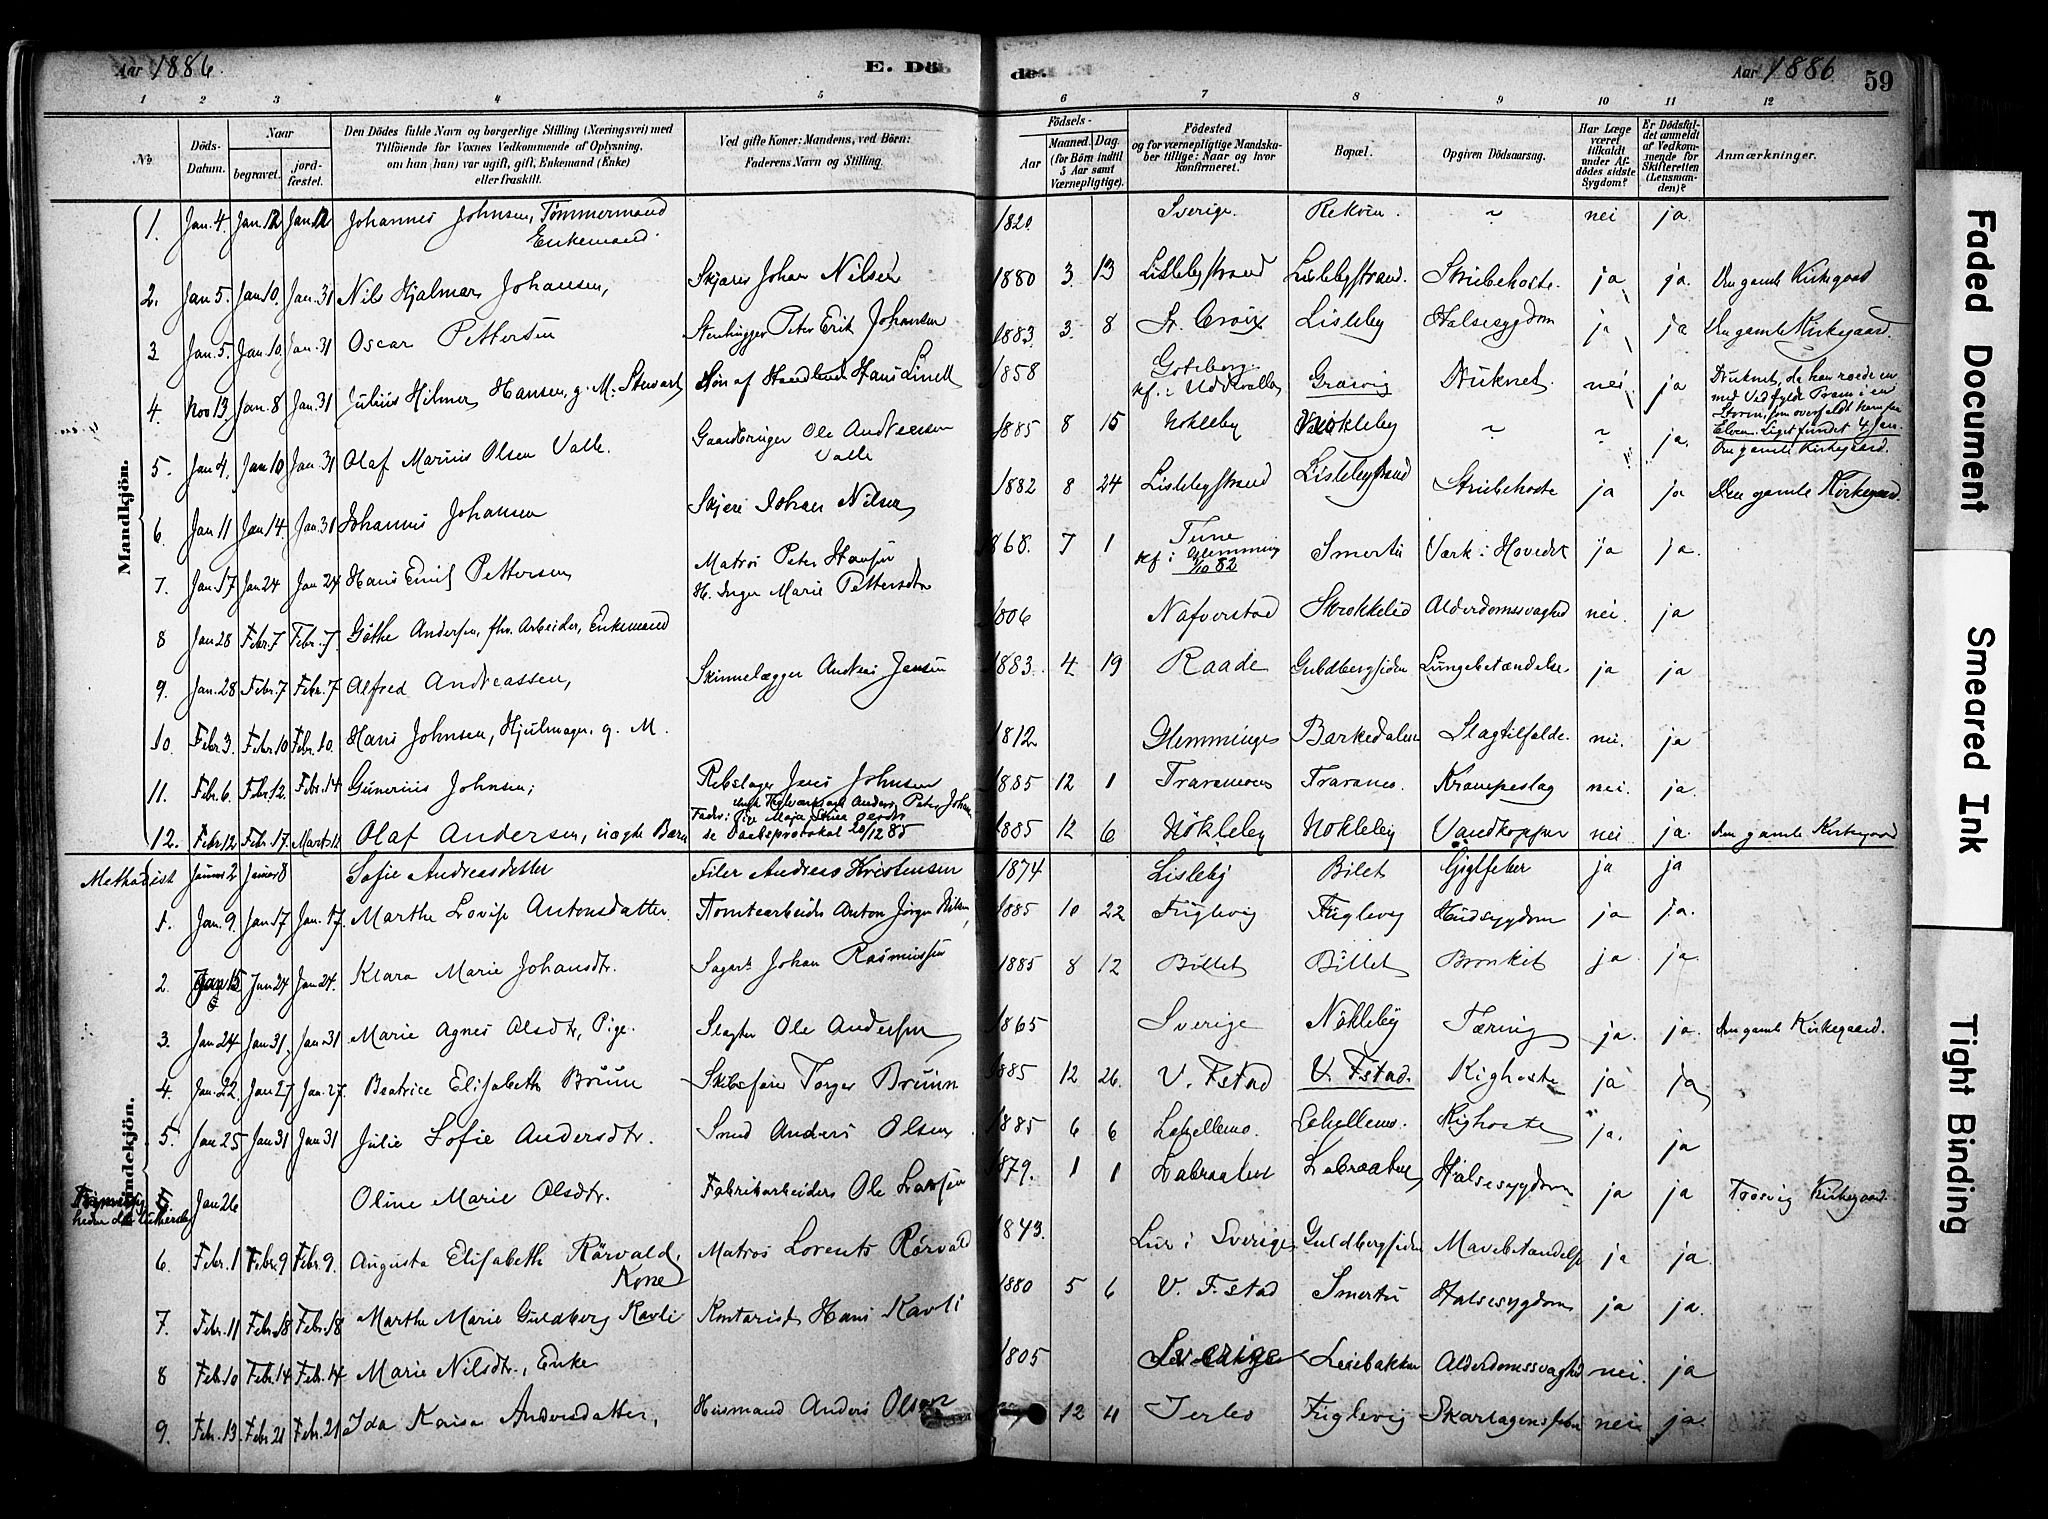 Aar 1886. E. Dö
de. Aar 1886 59
1 2 3 4 5 6 7 8 9 10 11 12
No
Döds-Datum.
Naar
begravet.
jord-fæstet.
Den Dödes fulde Navn og borgerlige Stilling (Næringsvei) med
Tilföiende for Voxnes Vedkommende af Oplysning,
om han (hun) var ugift, gift, Enkemand (Enke)
eller fraskilt.
Ved gifte Koner: Mandens, ved Börn:
Faderens Navn og Stilling.
Födsels-
Aar
Maaned. (for Börn indtil 5 Aar samt Værnepligtige).
Dag.
Födested
og for værnepligtige Mandska-
ber tillige: Naar og hvor
konfirmeret.
Bopæl.
Opgiven Dödsaarsag.
Har Læge været tilkaldt under Afdödes sidste Sygdom?
Er Dödsfaldet anmeldt af Vedkommende for Skifteretten (Lensmanden)?
Anmærkninger.
Mandkjön.
1. Jan. 4. Jan. 12 Jan. 12 Johannes Johnsen, Tömmermand Enkemand. 1820 Sverige. Rekvin. ~ nei ja.
2. Jan 5. Jan 10. Jan. 31 Nils Hjalmar Johansen, Skjærer Johan Nilsen 1880 3. 13 Lislebystrand Lislebystrand. Strubehoste. ja ja. Den gamle Kirkegaard
3 Jan 5. Jan 10. Jan. 31 Oscar Pettersen Stenhugger Peter Erik Johansen 1883. 3. 8 St. Croix Lisleby Halssygdom ja ja Den gamle Kirkegaard.
4. Nov 13 Jan. 8 Jan. 31 Julius Hilmer Hansen, g. M. Stewart Søn af Handlende Hans Linell 1858 Göteborg kf. i Uddevalla Græsvig Druknet. nei ja Druknet, da han roede en
med Ved fyldt Pram i en
Storm, som overfaldt ham paa
Elven. Liget fundet 4 Jan.
Den gamle Kirkegaard.
5. Jan 4. Jan 10 Jan 31 Olaf Marius Olsen Valle. Gaardbruger Ole Andreasen Valle 1885 8 15 Nökleby Nökleby ~ ~ ja.
6. Jan 11 Jan 14. Jan. 31 Johannes Johansen Skjærer Johan Nilsen 1882 8 24 Lislebystrand Lislebystrand Strubehoste ja ja Den gamle Kirkegaard
7. Jan 17 Jan 24 Jan 24 Hans Emil Pettersen Matros Peter Hansen
H. Inger Marie Pettersdtr 1868. 7 1 Tune kf. i Glemminge 1/10 82 Smertu Værk i Hovedet ja ja.
8 Jan 28 Febr. 7 Febr. 7. Göthe Andersen, fhv. Arbeider, Enkemand 1806 Nafverstad Skrokkelid Alderdomssvaghed nei. ja
9. Jan. 28 Febr. 7 Febr. 7 Alfred Andreassen, Skinnelægger Andreas Jensen 1883. 4 19 Raade Guldbergsiden Lungebetændelse. ja ja
10. Febr. 3. Febr. 10 Febr. 10. Hans Johnsen, Hjulmager. g. M. 1812 Glemminge Barkedalen Slagtilfælde. nei. ja
11. Febr. 6. Febr 12. Febr. 14 Gunerius Johnsen, Rebslager Jens Johnsen 1885 12 1 Traranæs Traranæs. Krampeslag nei. ja.
12. Febr 12 Febr. 17. Marts 12 Olaf Andersen, uægte Barn Anders Peter Johan
se Daabsprotokol 20/12 85 1885 12 6 Nökleby Nökleby Vandkopper nei ja. den gamle Kirkegaard
Methodist Januar 2 Januar 8 Sofie Andreasdatter Filer Andreas Kristensen 1874 Lisleby Bilet Gigtfeber ja ja
Kvindekjön.
1. Jan. 9. Jan 17 Jan. 17. Marthe Lovise Antonsdatter. Tomtearbeider Anton Jörgen Nilsen, 1885 10 22 Fuglevig Fuglevig Hudsygdom ja ja.
2. Jan 15 Jan 24 Jan 24. Klara Marie Johansdtr. Sagarb Johan Rasmussen 1885 8 12 Billet Billet Bronkit ja. ja.
3. Jan 24 Jan 31. Jan 31 Marie Agnes Olsdtr, Pige. Slagter Ole Andersen 1865 Sverige Nökleby Tæring ja. ja. den gamle Kirkegaard.
4. Jan. 22. Jan 27 Jan. 27. Beatrice Elisabeth Bruun Skibsfører Torger Bruun 1885 12 26. V. Fstad V. Fstad. Kighoste ja ja
5. Jan 25 Jan 31 Jan 31 Julie Sofie Andersdtr. Smed Anders Olsen 1885 6 6 Lahellemo. Lahellemo. Kighoste ja. ja
5. Jan 26 Oline Marie Olsdtr. Fabrikarbeider Ole Larsen 1879. 1 1 Labraaten Labraaten Halssygdom ja ja Trosvig Kirkegaard.
6. Febr. 1 Febr. 9 Febr. 9. Augusta Elisabeth Rörvald, Kone Matros Lorents Rörvald 1843. Lur i Sverige Guldbergsiden Mavebetændelse ja ja.
7. Febr. 11 Febr. 18 Febr. 18 Marthe Marie Guldberg Kavli Kontorist Hans Kavli 1880 5 6 V. F.stad Smertu Halssygdom ja ja.
8 Febr. 10 Febr. 14 Febr. 14 Marie Nilsdtr., Enke 1805 Sverige Leiebakken Alderdomssvaghed nei. ja
9. Febr. 13. Febr 21 Febr. 21 Ida Kaisa Andersdatter, Husmand Anders Olsen 12 4 Ierles Fuglevig Skarlagensfeber nei ja.
Faded Document
Smeared Ink
Tight Binding